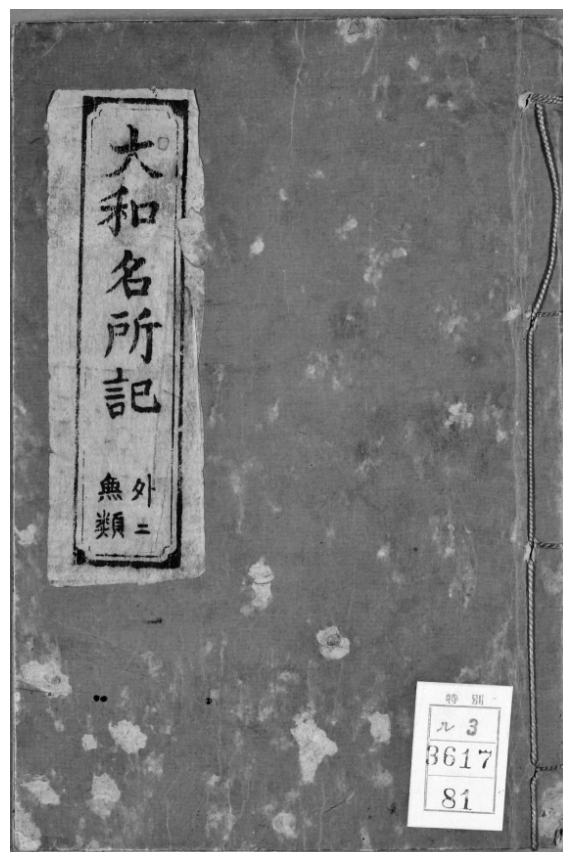 大和名所記
外ニ
無類
特別
ル3
3617
81